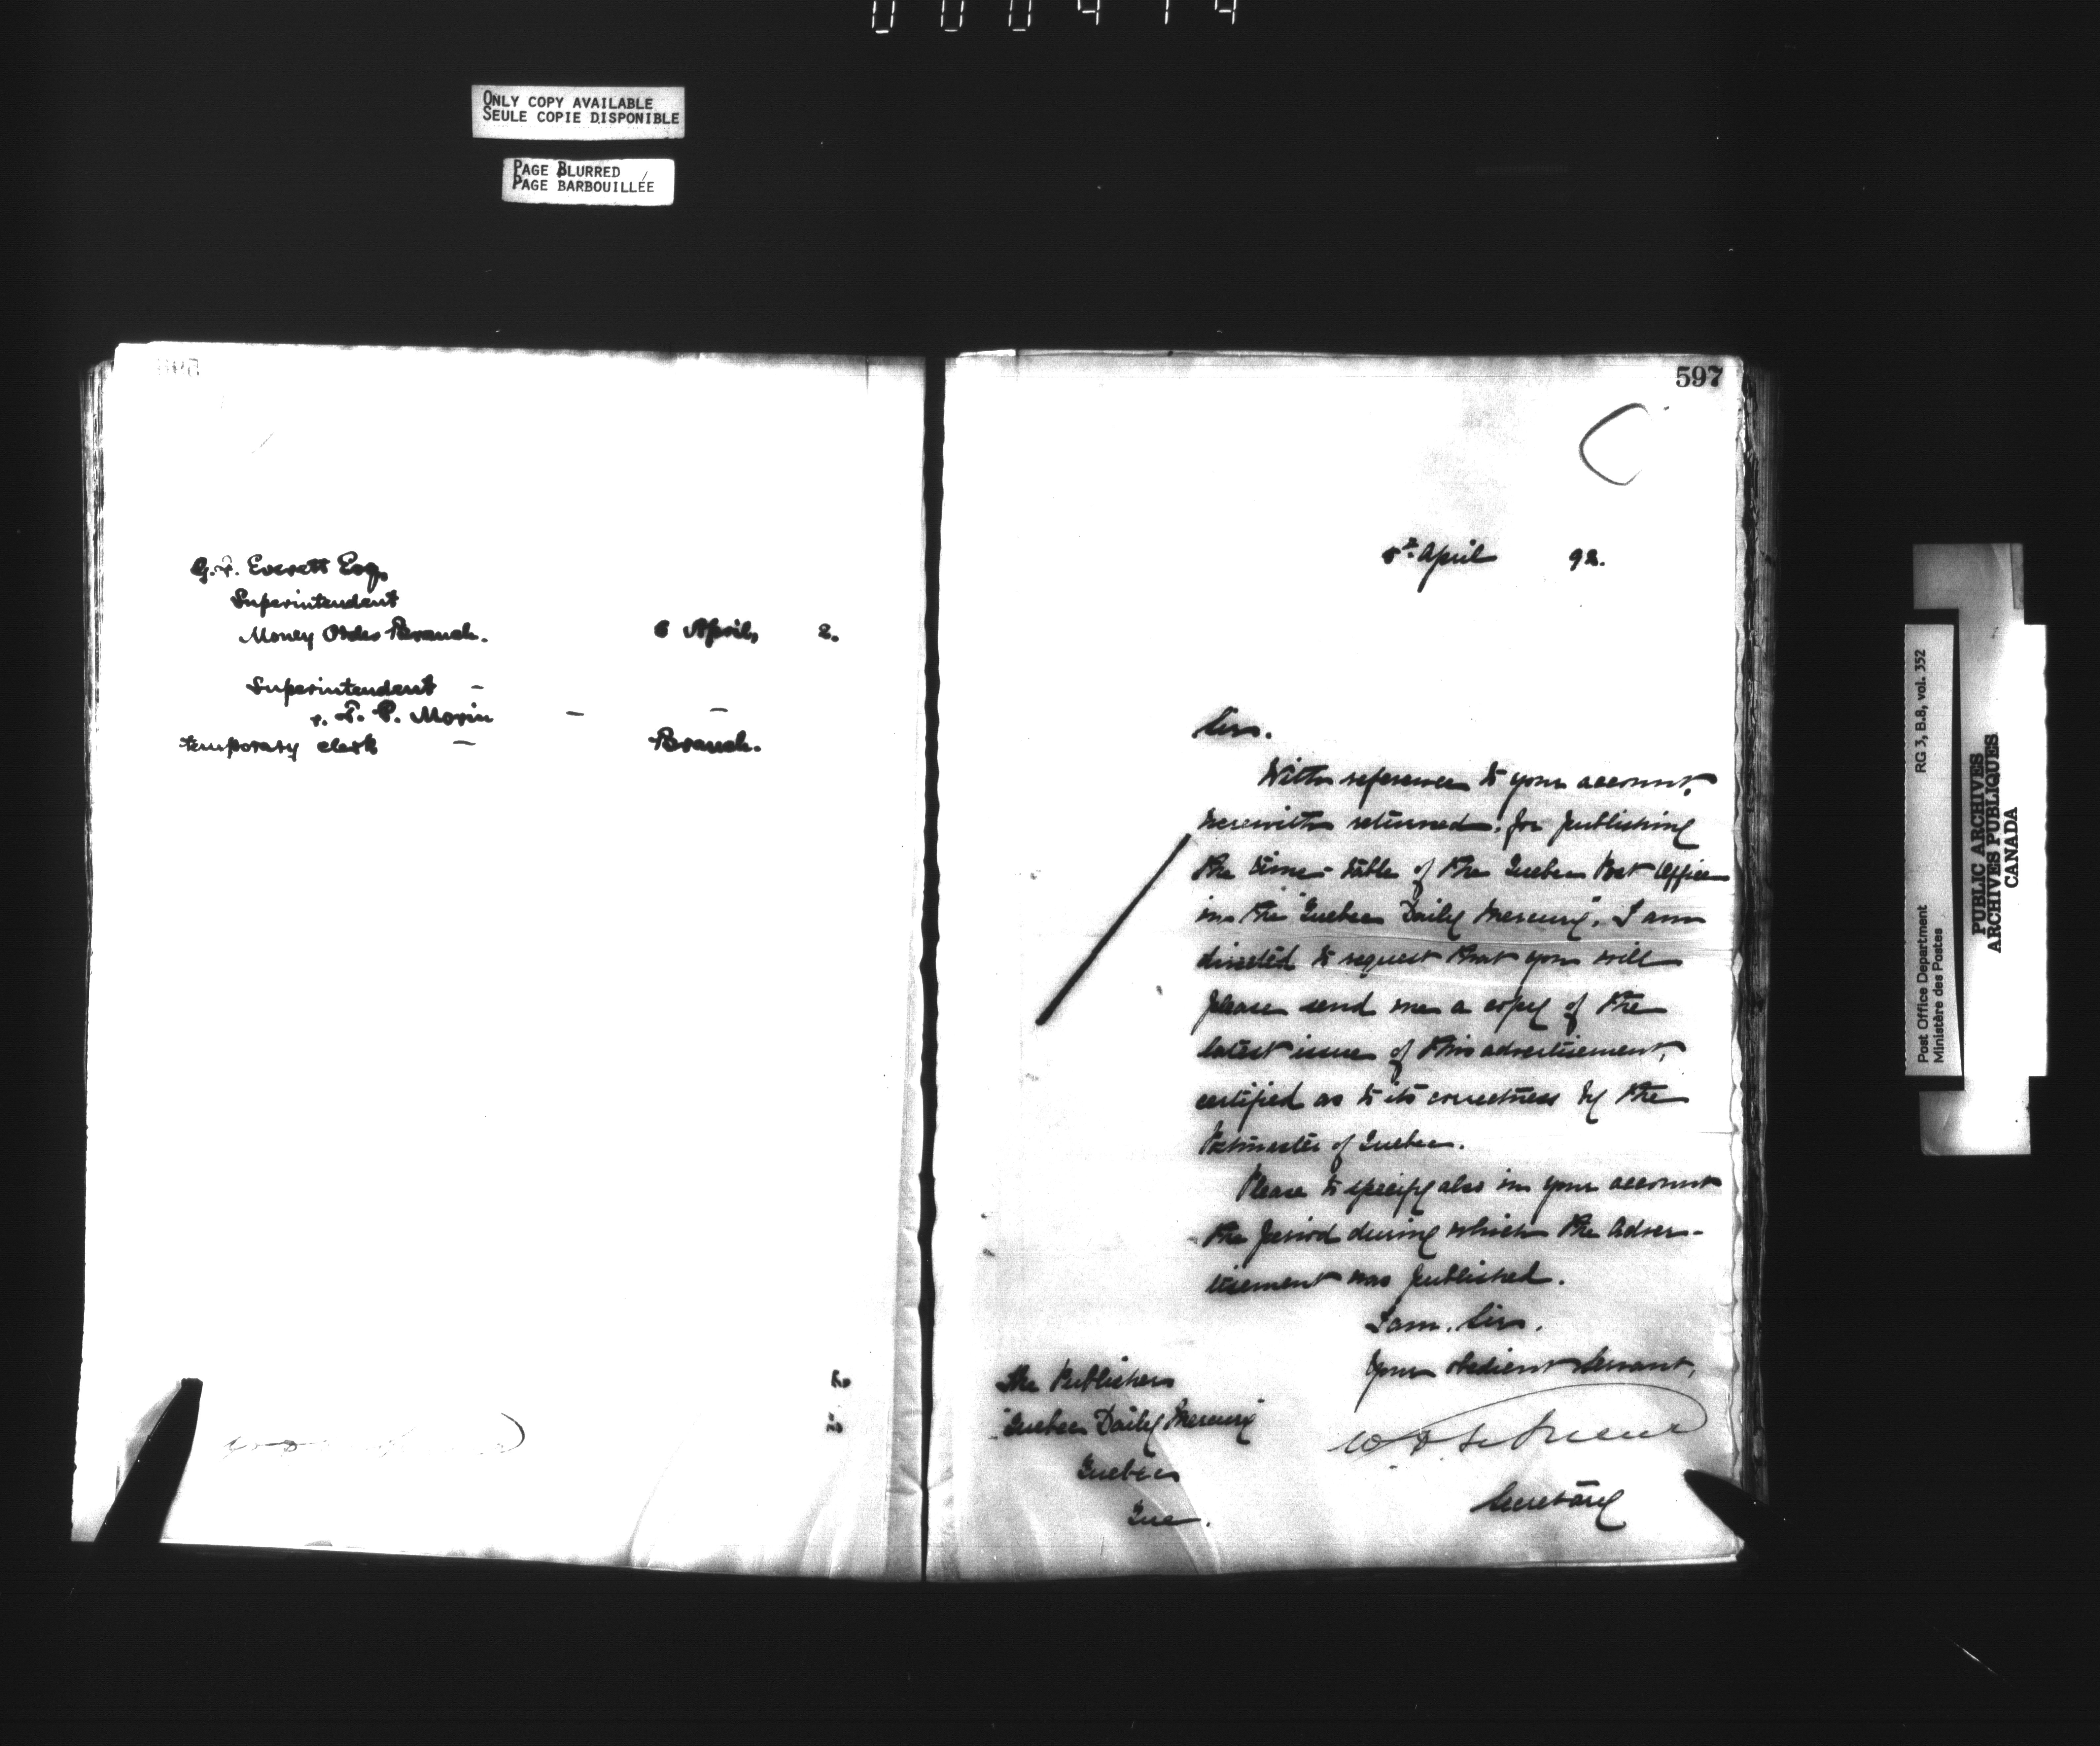 ONLY COPY AVAILABLE
SEULE COPIE DISPONIBLE
PAGE BLURRED
PAGE BARBOUILLÉE
G.F. Everett Esq.
Superintendent
Money Order Branch. 6 April, 2.
Superintendent -
r. F. P. Morin - -
temporary clerk - Branch.
597
5th April 92.
Sir.
With reference to your account,
herewith returned, for publishing
the time-table of the Quebec Post Office
in the "Quebec Daily Mercury", I am
directed to request that you will
please send me a copy of the
latest issue of this advertisement,
certified as to its correctness by the
Postmaster of Quebec.
Please to specify also in your account
the period during which the adver-
tisement was published.
I am, Sir,
Your obedient Servant,
Secretary
The Publisher
"Quebec Daily Mercury"
Quebec
Que.
Post Office Department RG 3, B.8, vol. 352
Ministère des Postes
PUBLIC ARCHIVES
ARCHIVES PUBLIQUES
CANADA